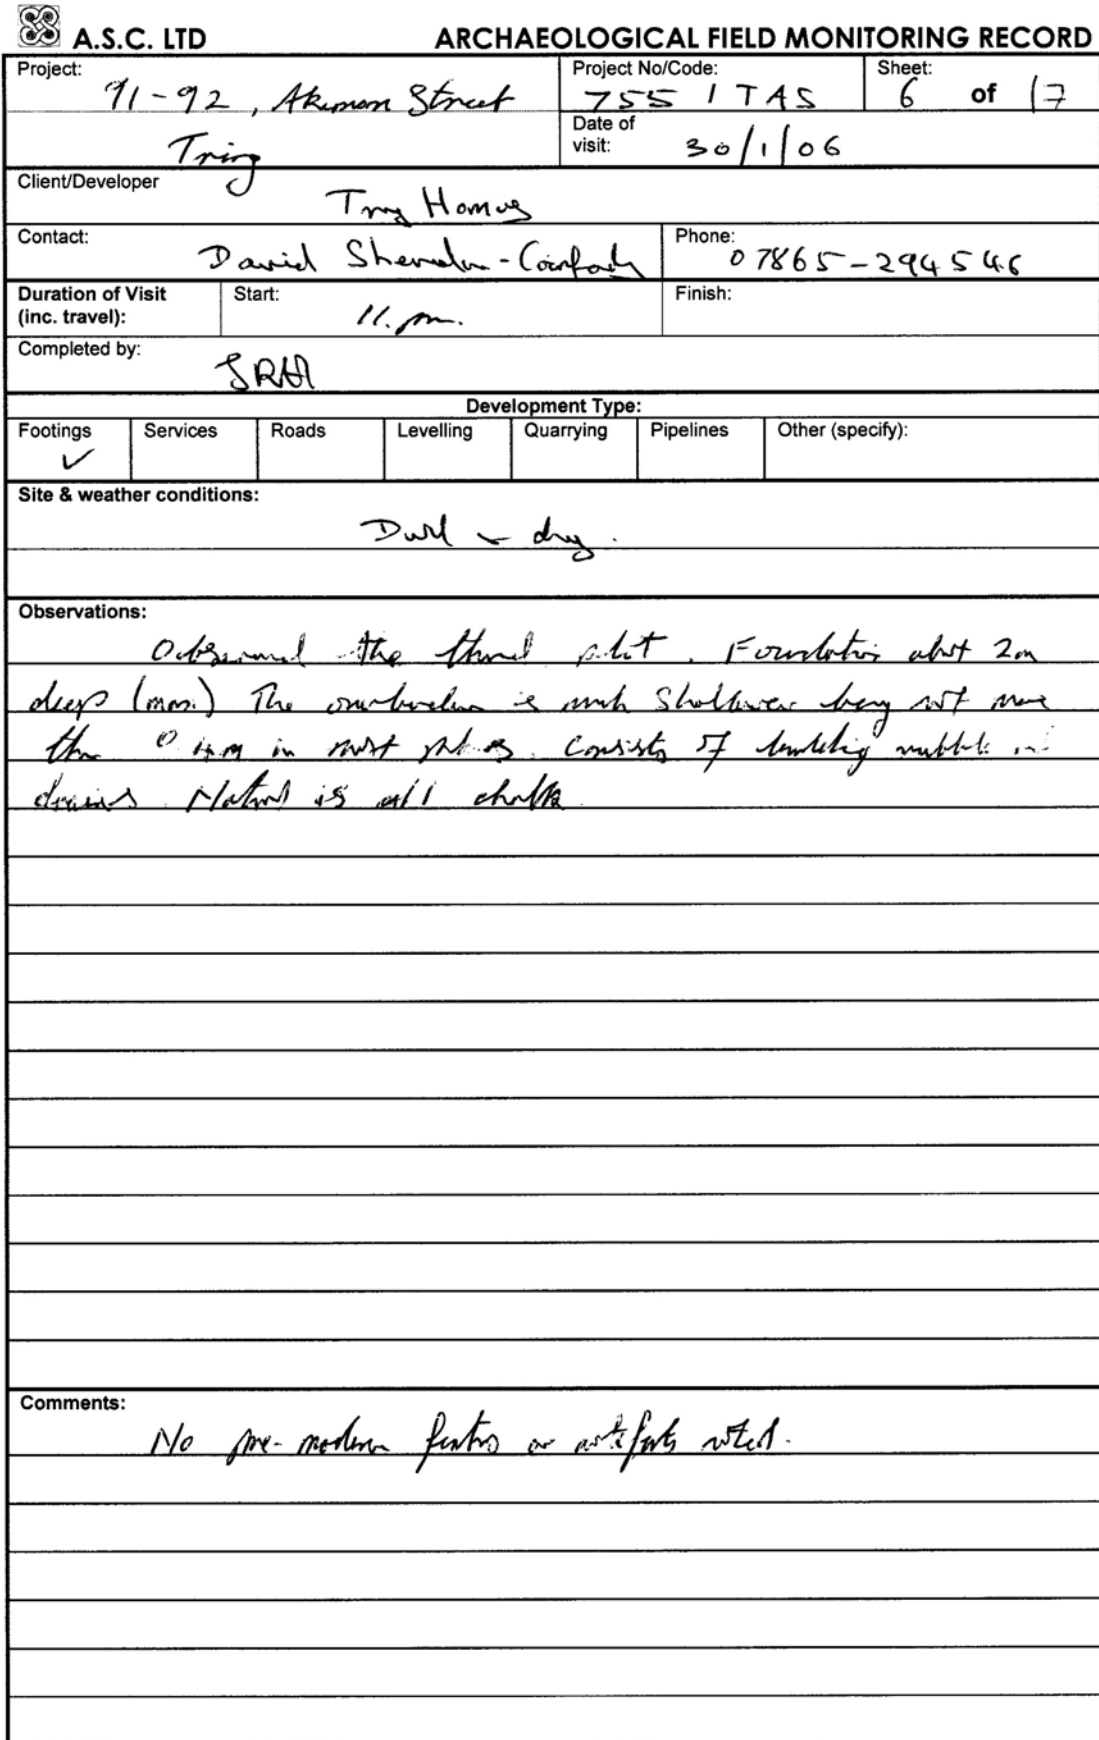 A.S.C. LTD ARCHAEOLOGICAL FIELD MONITORING RECORD
Project: 91-92, Akeman Street
Tring
Project No/Code: 755 / TAS
Sheet: 6 of 17
Date of visit: 30/1/06
Client/Developer Homes
Contact: David
Phone: 07865-294546
Duration of Visit (inc. travel): Start: 11. Finish:
Completed by:
Development Type:
Footings ✓ Services Roads Levelling Quarrying Pipelines Other (specify):
Site & weather conditions:
Dull & dry.
Observations:
Observed the third plot. Foundations about 2m
deep (max.) The overburden is much shallower being not more
than in most places. Consists of building rubble and
drains. Natural is all chalk
Comments:
No pre-modern features or artefacts noted.